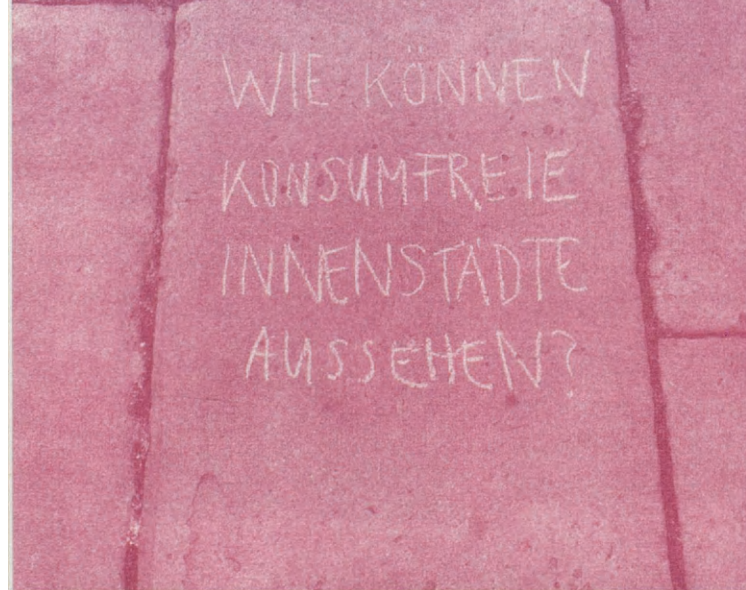 WIE KÖNNEN
KONSUMFREIE
INNENSTÄDTE
AUSSEHEN?